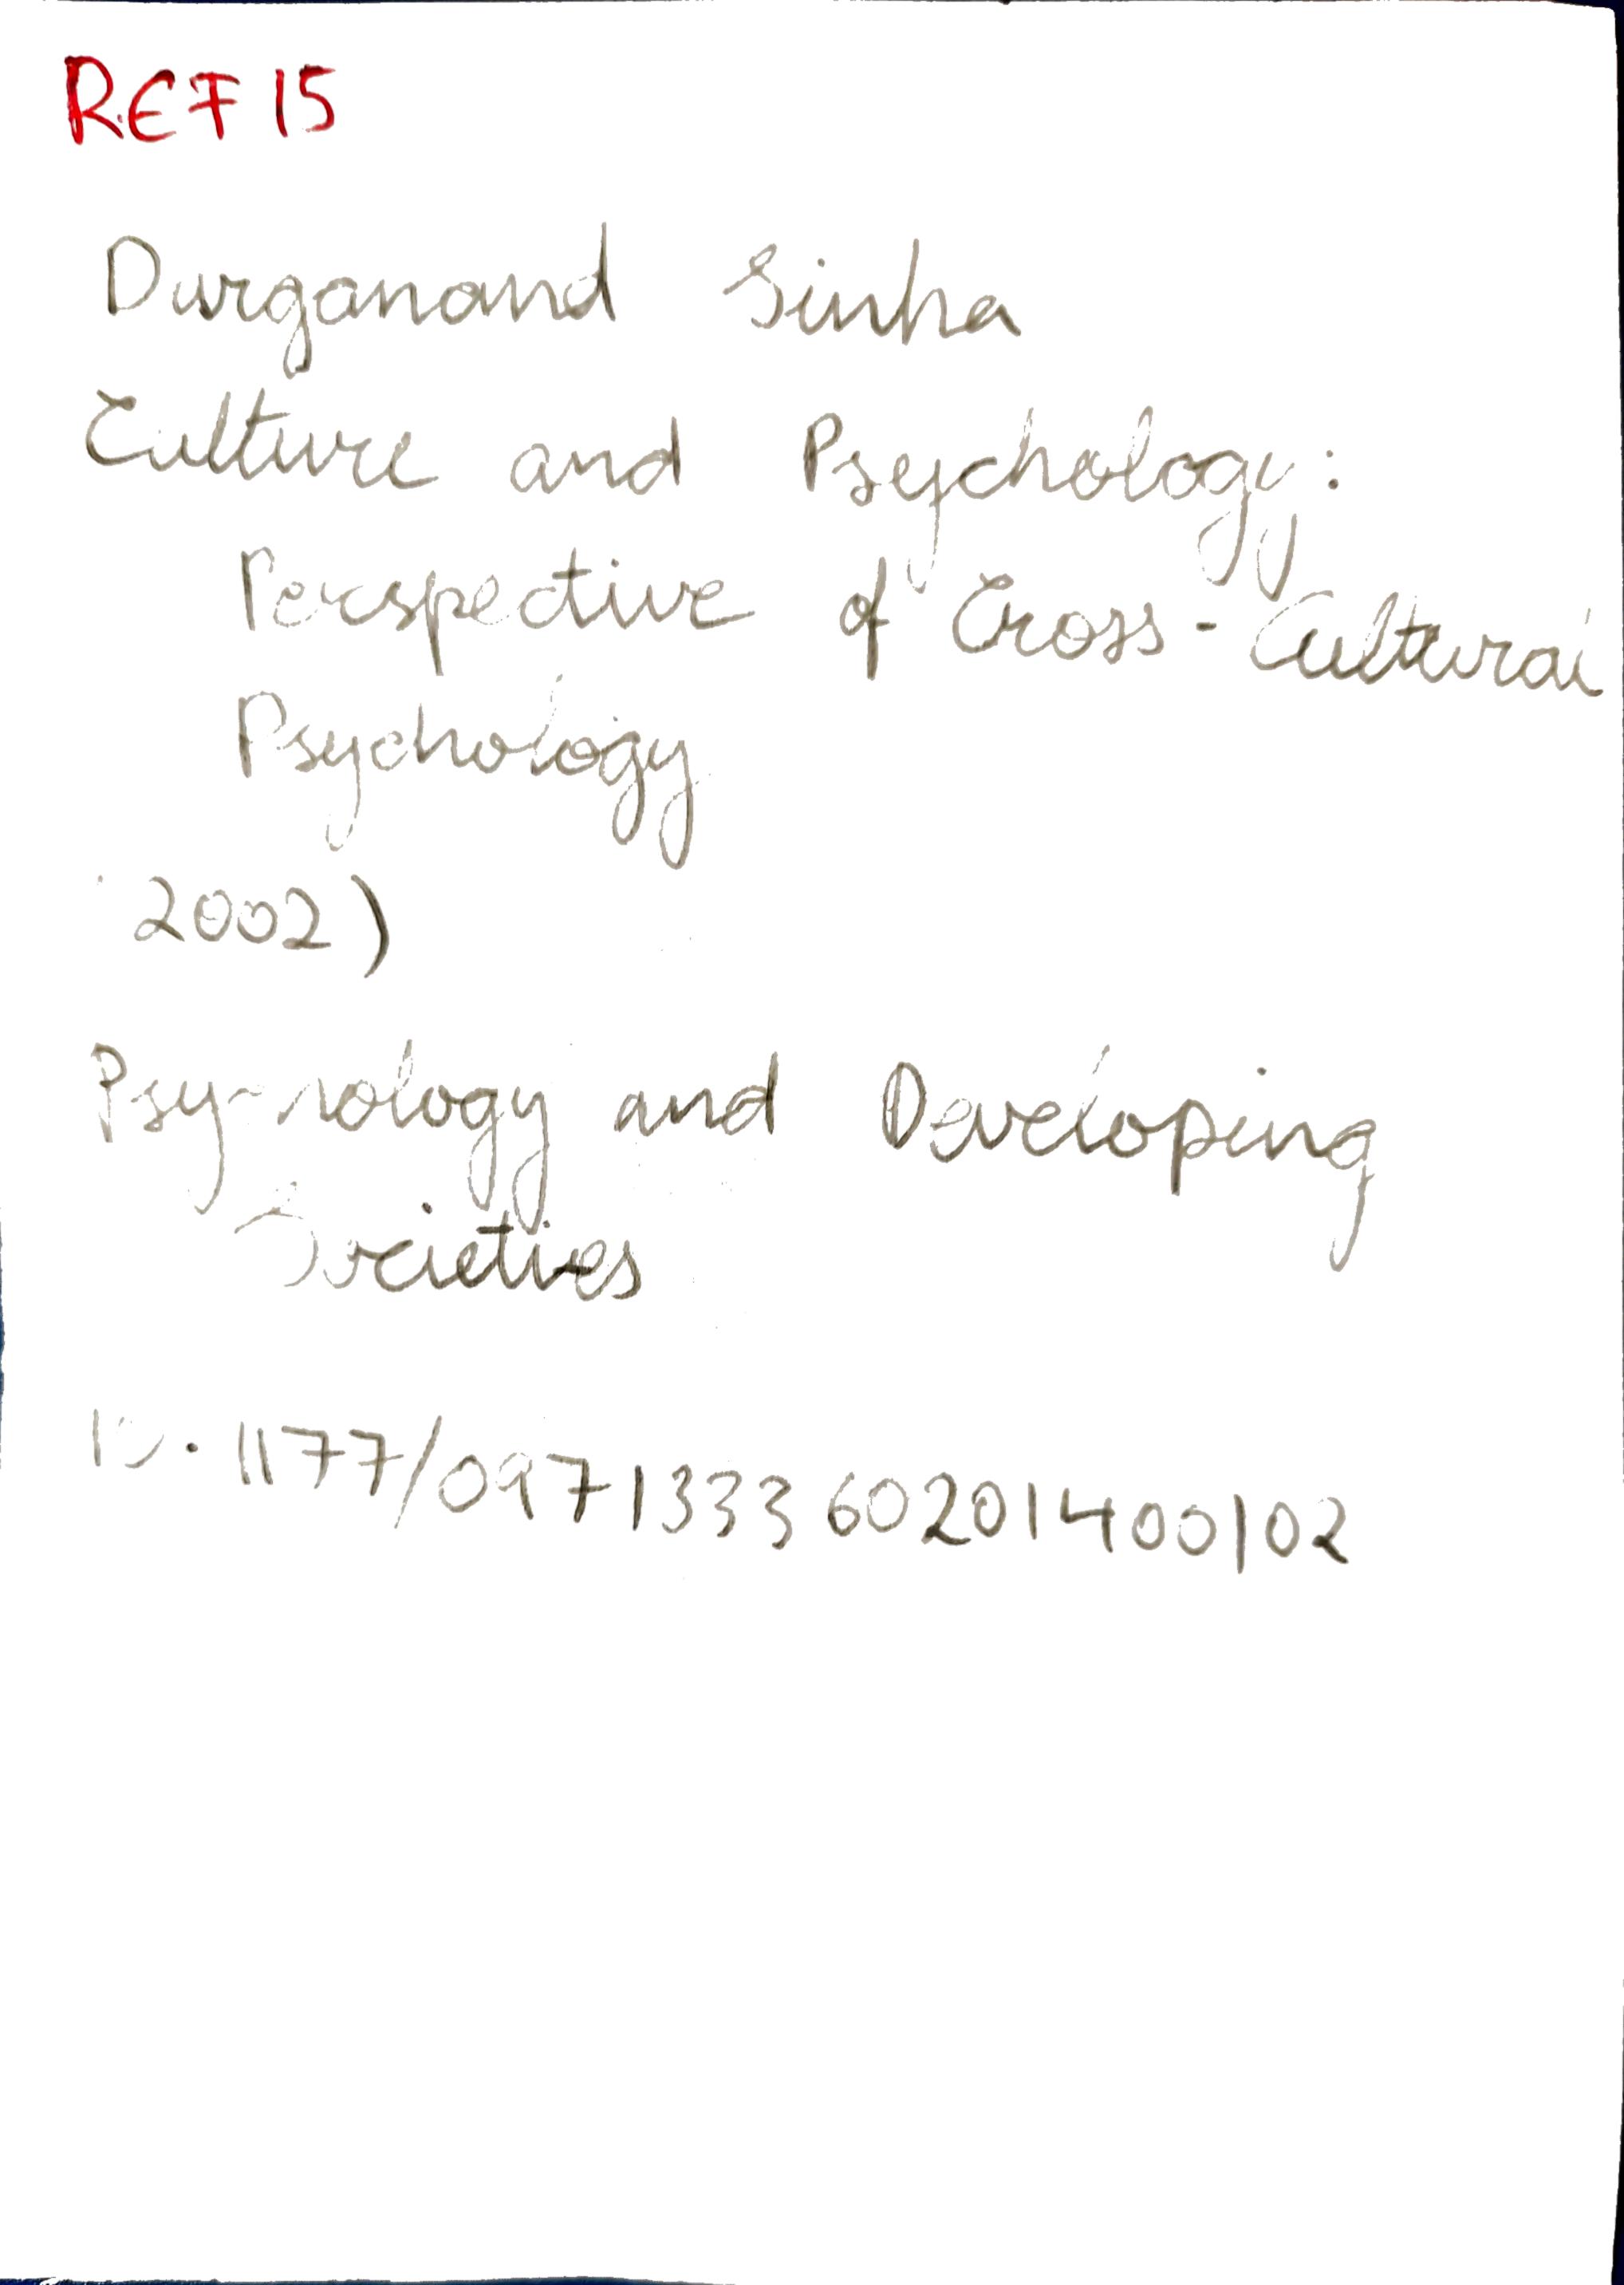 REF 15
Durganand Sinha
Culture and Psychology:
Perspective of Cross-Cultural
Psychology
2002)
Psychology and Developing
Societies
10.1177/097133360201400102